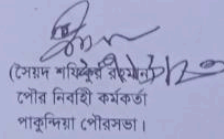 (সৈয়দ শফিকুর রহমান)
পৌর নির্বাহী কর্মকর্তা
পাকুন্দিয়া পৌরসভা।